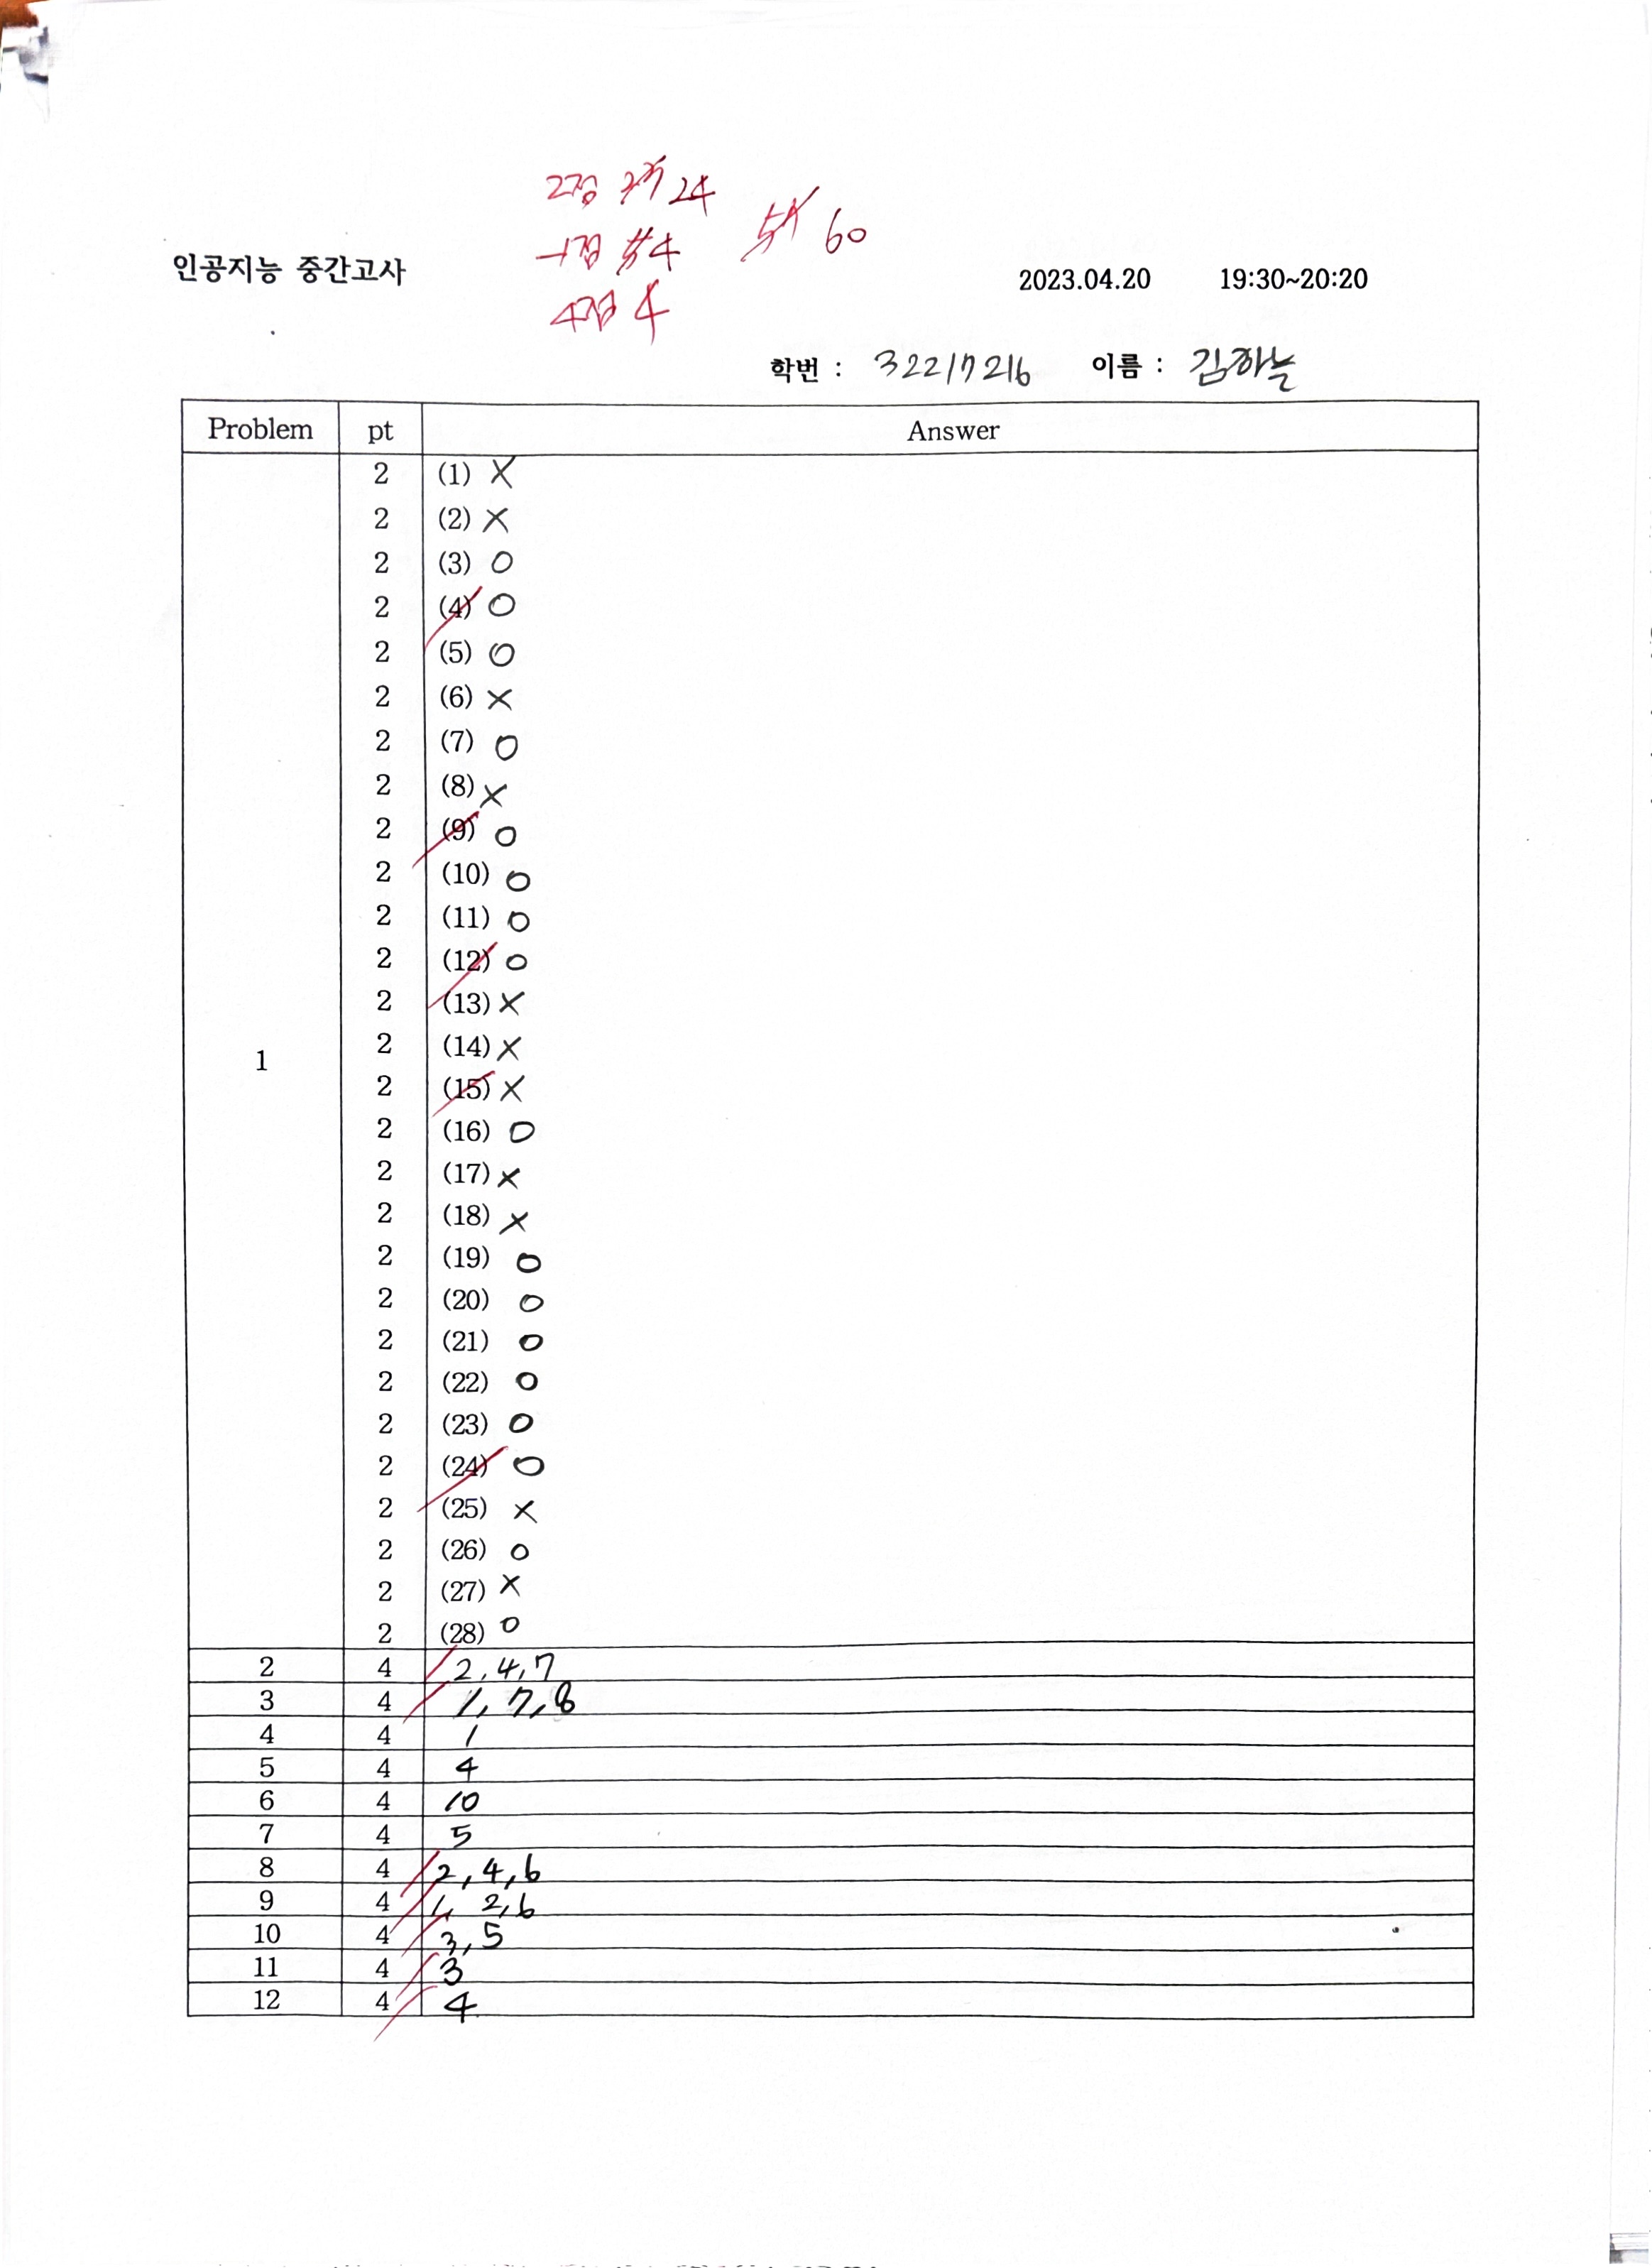 2점 24
인공지능 중간고사 -1점 4 60 2023.04.20 19:30~20:20
4점 4
학번 : 32217216 이름 : 김하늘
Problem pt Answer
2 (1) X
2 (2) X
2 (3) O
2 (4) O
2 (5) O
2 (6) X
2 (7) O
2 (8) X
2 (9) O
2 (10) O
2 (11) O
2 (12) O
2 (13) X
2 (14) X
1
2 (15) X
2 (16) O
2 (17) X
2 (18) X
2 (19) O
2 (20) O
2 (21) O
2 (22) O
2 (23) O
2 (24) O
2 (25) X
2 (26) O
2 (27) X
2 (28) O
2 4 2, 4, 7
3 4 1, 7, 8
4 4 1
5 4 4
6 4 10
7 4 5
8 4 2, 4, 6
9 4 1, 2, 6
10 4 3, 5
11 4 3
12 4 4